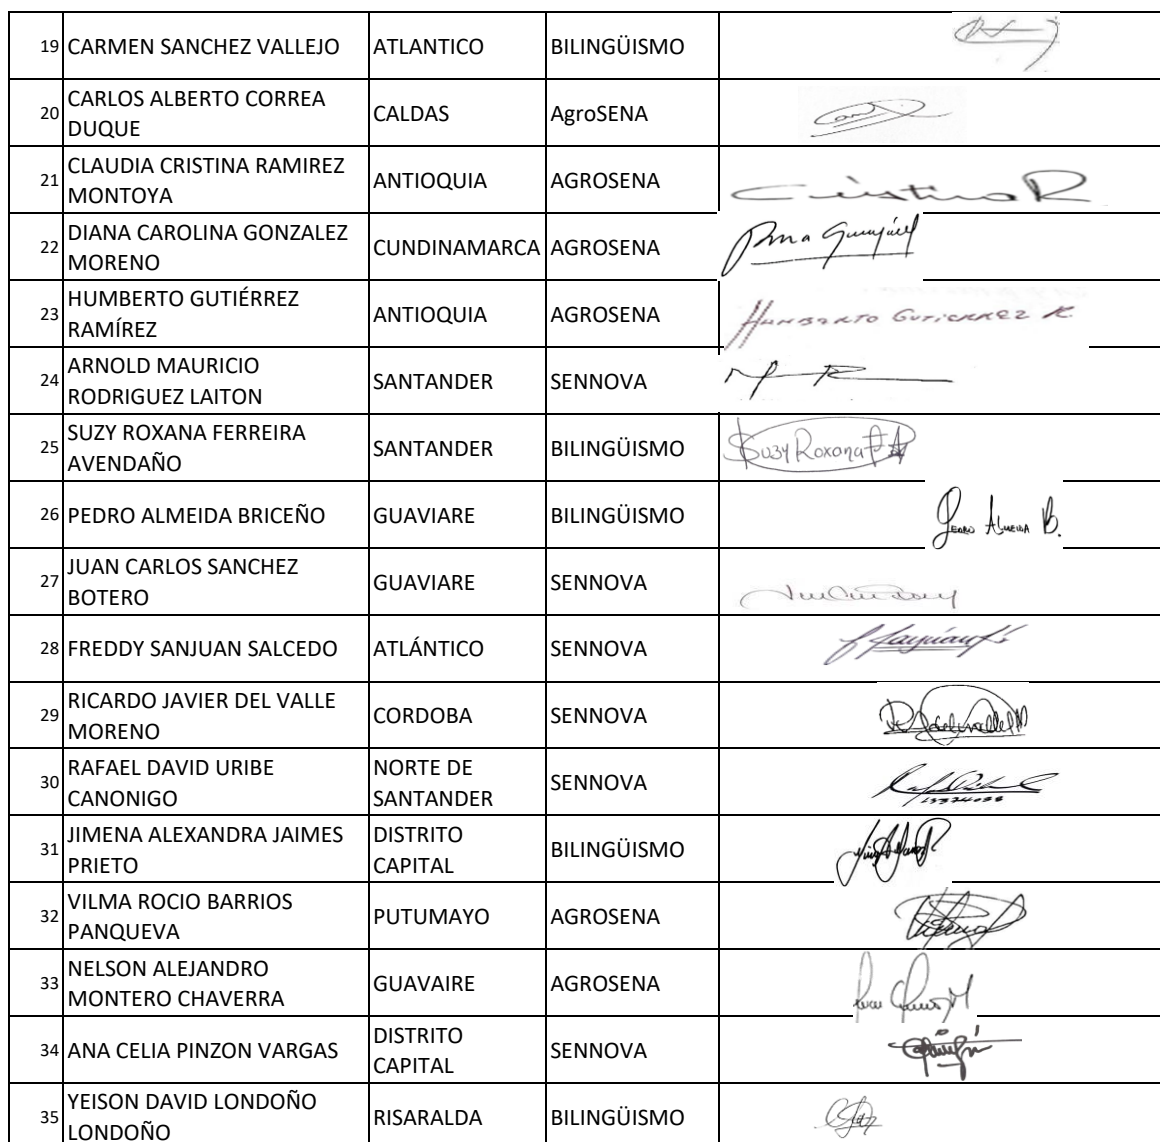 19 CARMEN SANCHEZ VALLEJO ATLANTICO BILINGÜISMO
CARLOS ALBERTO CORREA
20 DUQUE CALDAS AgroSENA
CLAUDIA CRISTINA RAMIREZ
21 MONTOYA ANTIOQUIA AGROSENA Cristina R
DIANA CAROLINA GONZALEZ
22 MORENO CUNDINAMARCA AGROSENA
HUMBERTO GUTIÉRREZ
23 RAMÍREZ ANTIOQUIA AGROSENA HUMBERTO GUTIERREZ R.
ARNOLD MAURICIO
24 RODRIGUEZ LAITON SANTANDER SENNOVA
SUZY ROXANA FERREIRA
25 AVENDAÑO SANTANDER BILINGÜISMO Suzy Roxana
26 PEDRO ALMEIDA BRICEÑO GUAVIARE BILINGÜISMO PEDRO ALMEIDA B.
JUAN CARLOS SANCHEZ
27 BOTERO GUAVIARE SENNOVA
28 FREDDY SANJUAN SALCEDO ATLÁNTICO SENNOVA
RICARDO JAVIER DEL VALLE
29 MORENO CORDOBA SENNOVA
RAFAEL DAVID URIBE NORTE DE
30 CANONIGO SANTANDER SENNOVA
JIMENA ALEXANDRA JAIMES DISTRITO
31 PRIETO CAPITAL BILINGÜISMO
VILMA ROCIO BARRIOS
32 PANQUEVA PUTUMAYO AGROSENA
NELSON ALEJANDRO
33 MONTERO CHAVERRA GUAVAIRE AGROSENA
DISTRITO
34 ANA CELIA PINZON VARGAS CAPITAL SENNOVA
YEISON DAVID LONDOÑO
35 LONDOÑO RISARALDA BILINGÜISMO